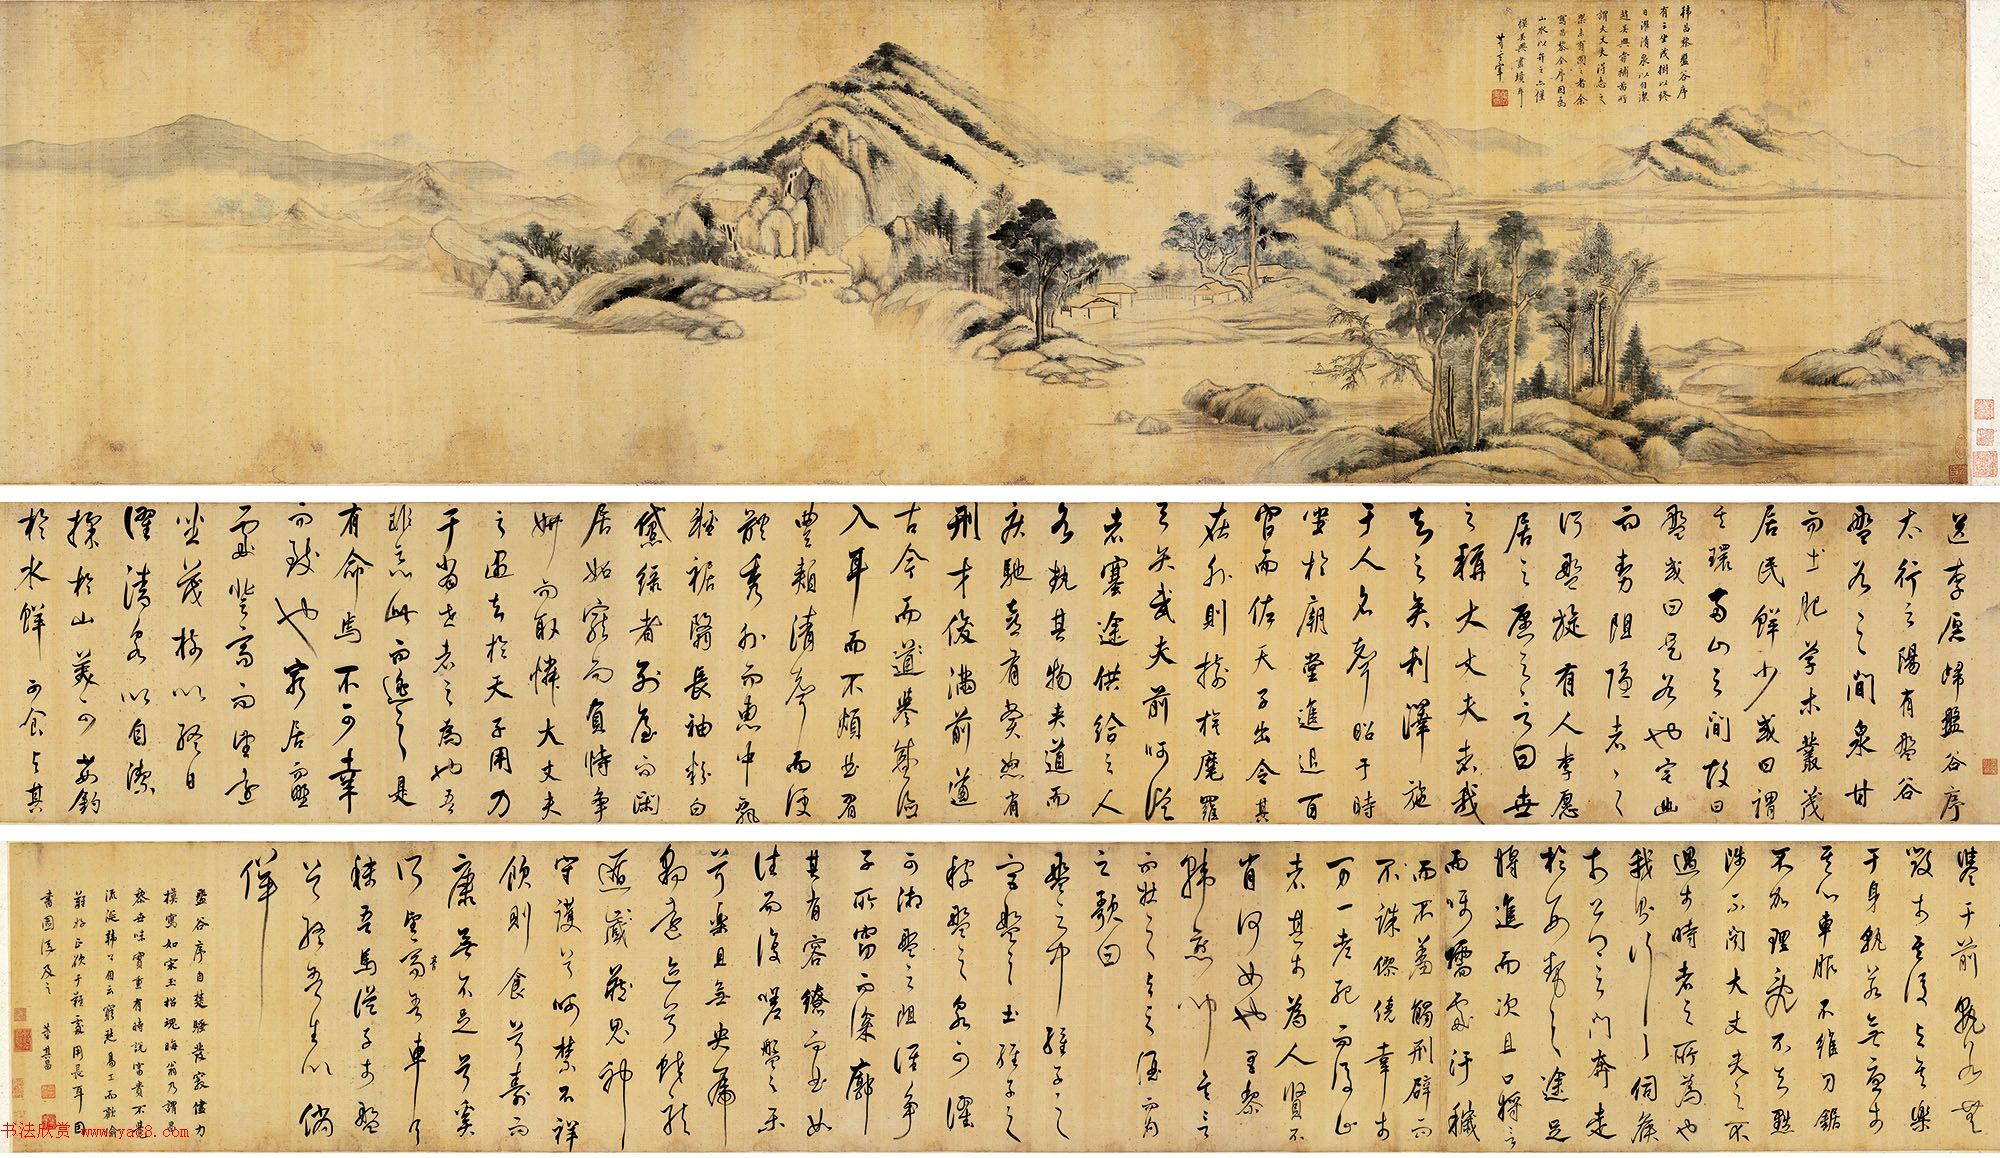 韓昌黎盤谷序
有云坐茂樹以終
日濯清泉以自潔
趙吳興嘗補圖所
謂大丈夫得志之
樂未有圖之者余
寫昌黎全序因為
山水以弁之亦僅
模吳興畫境耳
董玄宰
送李愿歸盤谷序
太行之陽有盤谷
盤谷之間泉甘
而土肥草木叢茂
居民鮮少或曰謂
其環兩山之間故曰
盤或曰是谷也宅幽
而勢阻隱者之
所盤旋有人李愿
居之愿之言曰世
之稱大丈夫者我
知之矣利澤施
于人名聲昭于時
坐於廟堂進退百
官而佐天子出令其
在外則樹旗麾羅
弓矢武夫前呵從
者塞途供給之人
各執其物夾道而
疾馳喜有賞怒有
刑才俊滿前道
古今而譽盛德
入耳而不煩曲眉
豐頰清聲而便
體秀外而惠中飄
輕裾翳長袖粉白
黛綠者列屋而閑
居妬寵而負恃爭
妍而取憐大丈夫
之遇知於天子用力
于當世者之為也吾
非惡此而逃之是
有命焉不可幸
而致也窮居而野
處升高而望遠
坐茂樹以終日
濯清泉以自潔
採於山美可茹釣
於水鮮可食與其
譽于前孰若無
毀於其後與其樂
于身孰若無憂於
其心車服不維刀鋸
不加理亂不知黜
陟不聞大丈夫之不
遇於時者之所為也
我則行之伺候
於公卿之門奔走
於形勢之途足
將進而次且口將言
而囁嚅處汙穢
而不羞觸刑辟而
不誅僥幸於
万一老死而後止
者其於為人賢不
肖何如也昌黎
韓愈聞其言
而壯之與之酒而為
之歌曰
盤之中維子之
宮盤之土維子之
稼盤之泉可濯
可湘盤之阻誰爭
子所窈而深廓
其有容繚而曲如
往而復嗟盤之樂
兮樂且無央虎
豹遠迹兮蛟龍
遁藏鬼神
守護兮呵禁不祥
飲則食兮壽而
康無不足兮奚
所望膏吾車兮
秣吾馬從子於盤
兮終吾生以徜
徉
盤谷序自楚騷發窾儘力
模寫如宋玉招魂晦翁乃謂昌
黎世味實重有時說富貴不覺
流涎韓公自云窮愁易工而歡愉
難好正欲于難處用長耳因
書圖後及之 董其昌
书法欣赏 www.yac8.com